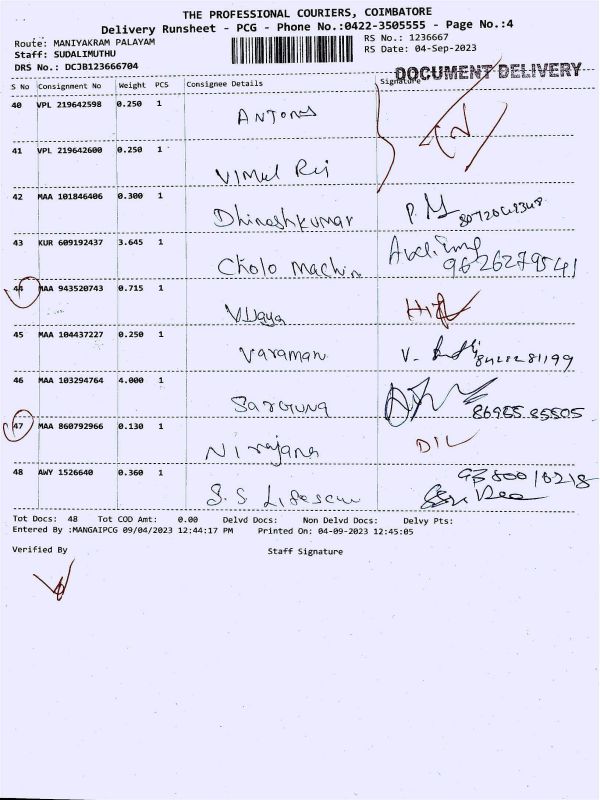 THE PROFESSIONAL COURIERS, COIMBATORE
Delivery Runsheet - PCG - Phone No.:0422-3505555 - Page No.:4
Route: MANIYAKRAM PALAYAM
RS No.: 1236667
Staff: SUDALIMUTHU
RS Date: 04-Sep-2023
DRS No.: DCJB123666704
DOCUMENT DELIVERY
S No Consignment No Weight PCS Consignee Details Signature
40 VPL 219642598 0.250 1
Antony
41 VPL 219642600 0.250 1
Vimul Raj
42 MAA 101846406 0.300 1
Dhineshkumar
43 KUR 609192437 3.645 1
Cholo Machin 9626279541
44 MAA 943520743 0.715 1
Vijaya
45 MAA 104437227 0.250 1
Varaman
46 MAA 103294764 4.000 1
86985 85505
47 MAA 860792966 0.130 1
Nirajana DIL
48 AWY 1526640 0.360 1
S.S
Tot Docs: 48 Tot COD Amt: 0.00 Delvd Docs: Non Delvd Docs: Delvy Pts:
Entered By :MANGAIPCG 09/04/2023 12:44:17 PM Printed On: 04-09-2023 12:45:05
Verified By Staff Signature